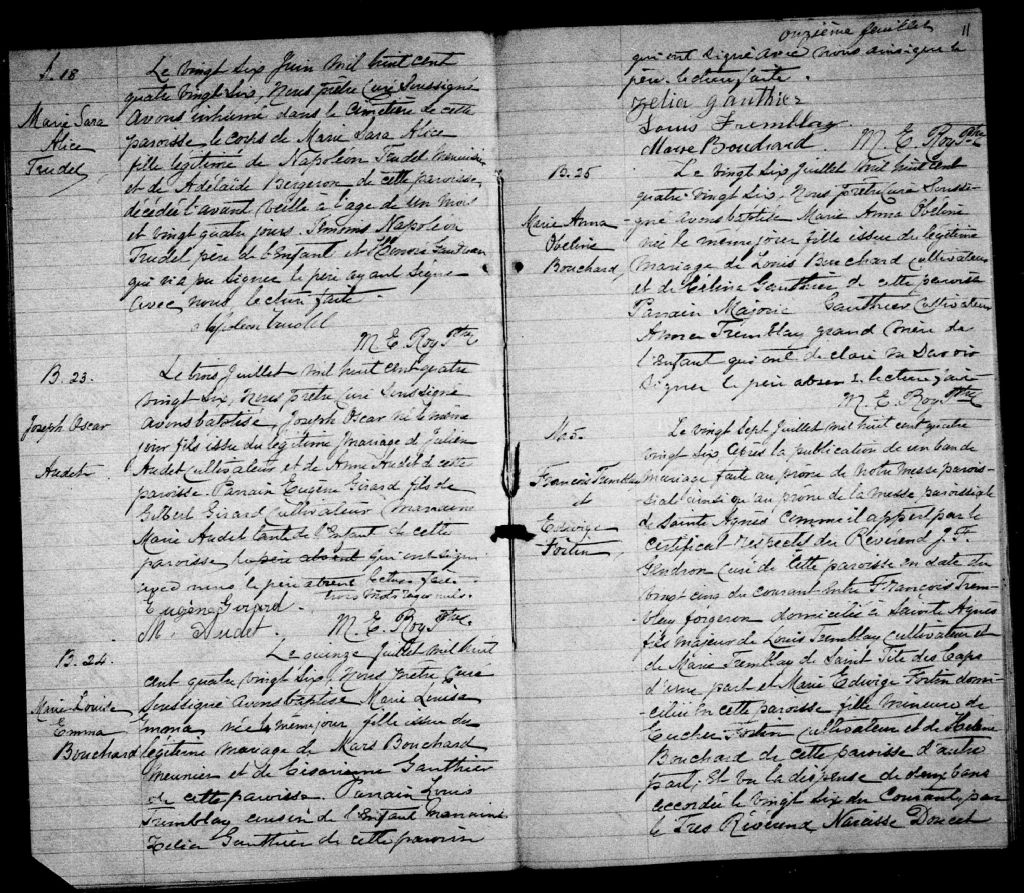 S. 18
Marie Sara
Alice
Trudel
Le vingt six Juin mil huit cent
quatre vingt six, Nous prêtre Curé Soussigné
avons inhumé dans le Cimetière de cette
paroisse le corps de Marie Sara Alice
fille légitime de Napoléon Trudel menuisier
et de Adélaïde Bergeron de cette paroisse,
décédée l'avant veille à l'age de un mois
et vingt quatre jours. Témoins Napoléon
Trudel père de l'Enfant et
qui n'a pu signer le père ayant signé
avec nous lecture faite.
Napoléon Trudel
M. E. Roy Ptre
B. 23.
Joseph Oscar
Audet
Le trois Juillet mil huit cent quatre
vingt six, nous prêtre Curé Soussigné
avons baptisé Joseph Oscar né le même
jour fils issu du légitime mariage de Julien
Audet cultivateur et de Anne Audet de cette
paroisse. Parrain Eugène Girard fils de
Gilbert Girard cultivateur marraine
Marie Audet tante de l'Enfant de cette
paroisse, le père absent qui ont signé
avec nous le père absent lecture faite
trois mots rayés nuls.
Eugène Girard.
M. Audet.
M. E. Roy Ptre.
B. 24.
Marie Louise
Emma
Bouchard
Le quinze Juillet mil huit
cent quatre vingt six, Nous prêtre Curé
Soussigné avons baptisé Marie Louise
Emma, née le même jour fille issue du
légitime mariage de Mars Bouchard
meunier et de Césarienne Gauthier
de cette paroisse Parrain Louis
Tremblay cousin de l'Enfant marraine
Zelia Gauthier de cette paroisse
onzième feuillet
11
qui ont signé avec nous ainsi que le
père. lecture faite.
Zelia gauthier
Louis Tremblay.
Marse Bouchard
M. E. Roy Ptre
B. 25
Marie Anna
Obéline
Bouchard,
Le vingt six Juillet mil huit cent
quatre vingt six, Nous prêtre curé Soussi-
-gné avons baptisé Marie Anna Obéline
née le même jour fille issue du légitime
mariage de Louis Bouchard cultivateur
et de Céline Gauthier de cette paroisse
Parrain Majorie Gauthier cultivateur
Tremblay grand mère de
l'Enfant qui ont déclaré ne savoir
signer le père absent. lecture faite
M. E. Roy Ptre
M. 5.
François Tremblay
et
Edwige
Fortin,
Le vingt Sept Juillet mil huit cent quatre
vingt six après la publication de un ban de
mariage faite au prône de notre messe parois-
siale ainsi qu'au prône de la messe paroissiale
de Sainte Agnès comme il appert par le
certificat respectif du Révérend J. F.
Gendron curé de cette paroisse en date du
vingt cinq du courant entre François Trem-
blay forgeron domicilié à Sainte Agnès
fils majeur de Louis Tremblay cultivateur et
de Marie Tremblay de Saint Tite des Caps
d'une part et Marie Edwige Fortin domi-
-ciliée en cette paroisse fille mineure de
Eucher Fortin cultivateur et de Helene
Bouchard de cette paroisse d'autre
part; Et vu la dispense de deux bans
accordée le vingt six du Courant, par
le Tres Révérend Narcisse Doucet